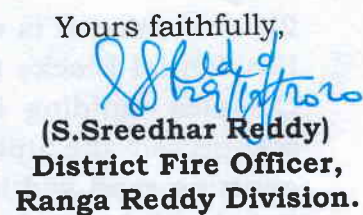 Yours faithfully,
29/12/2020
(S.Sreedhar Reddy)
District Fire Officer,
Ranga Reddy Division.